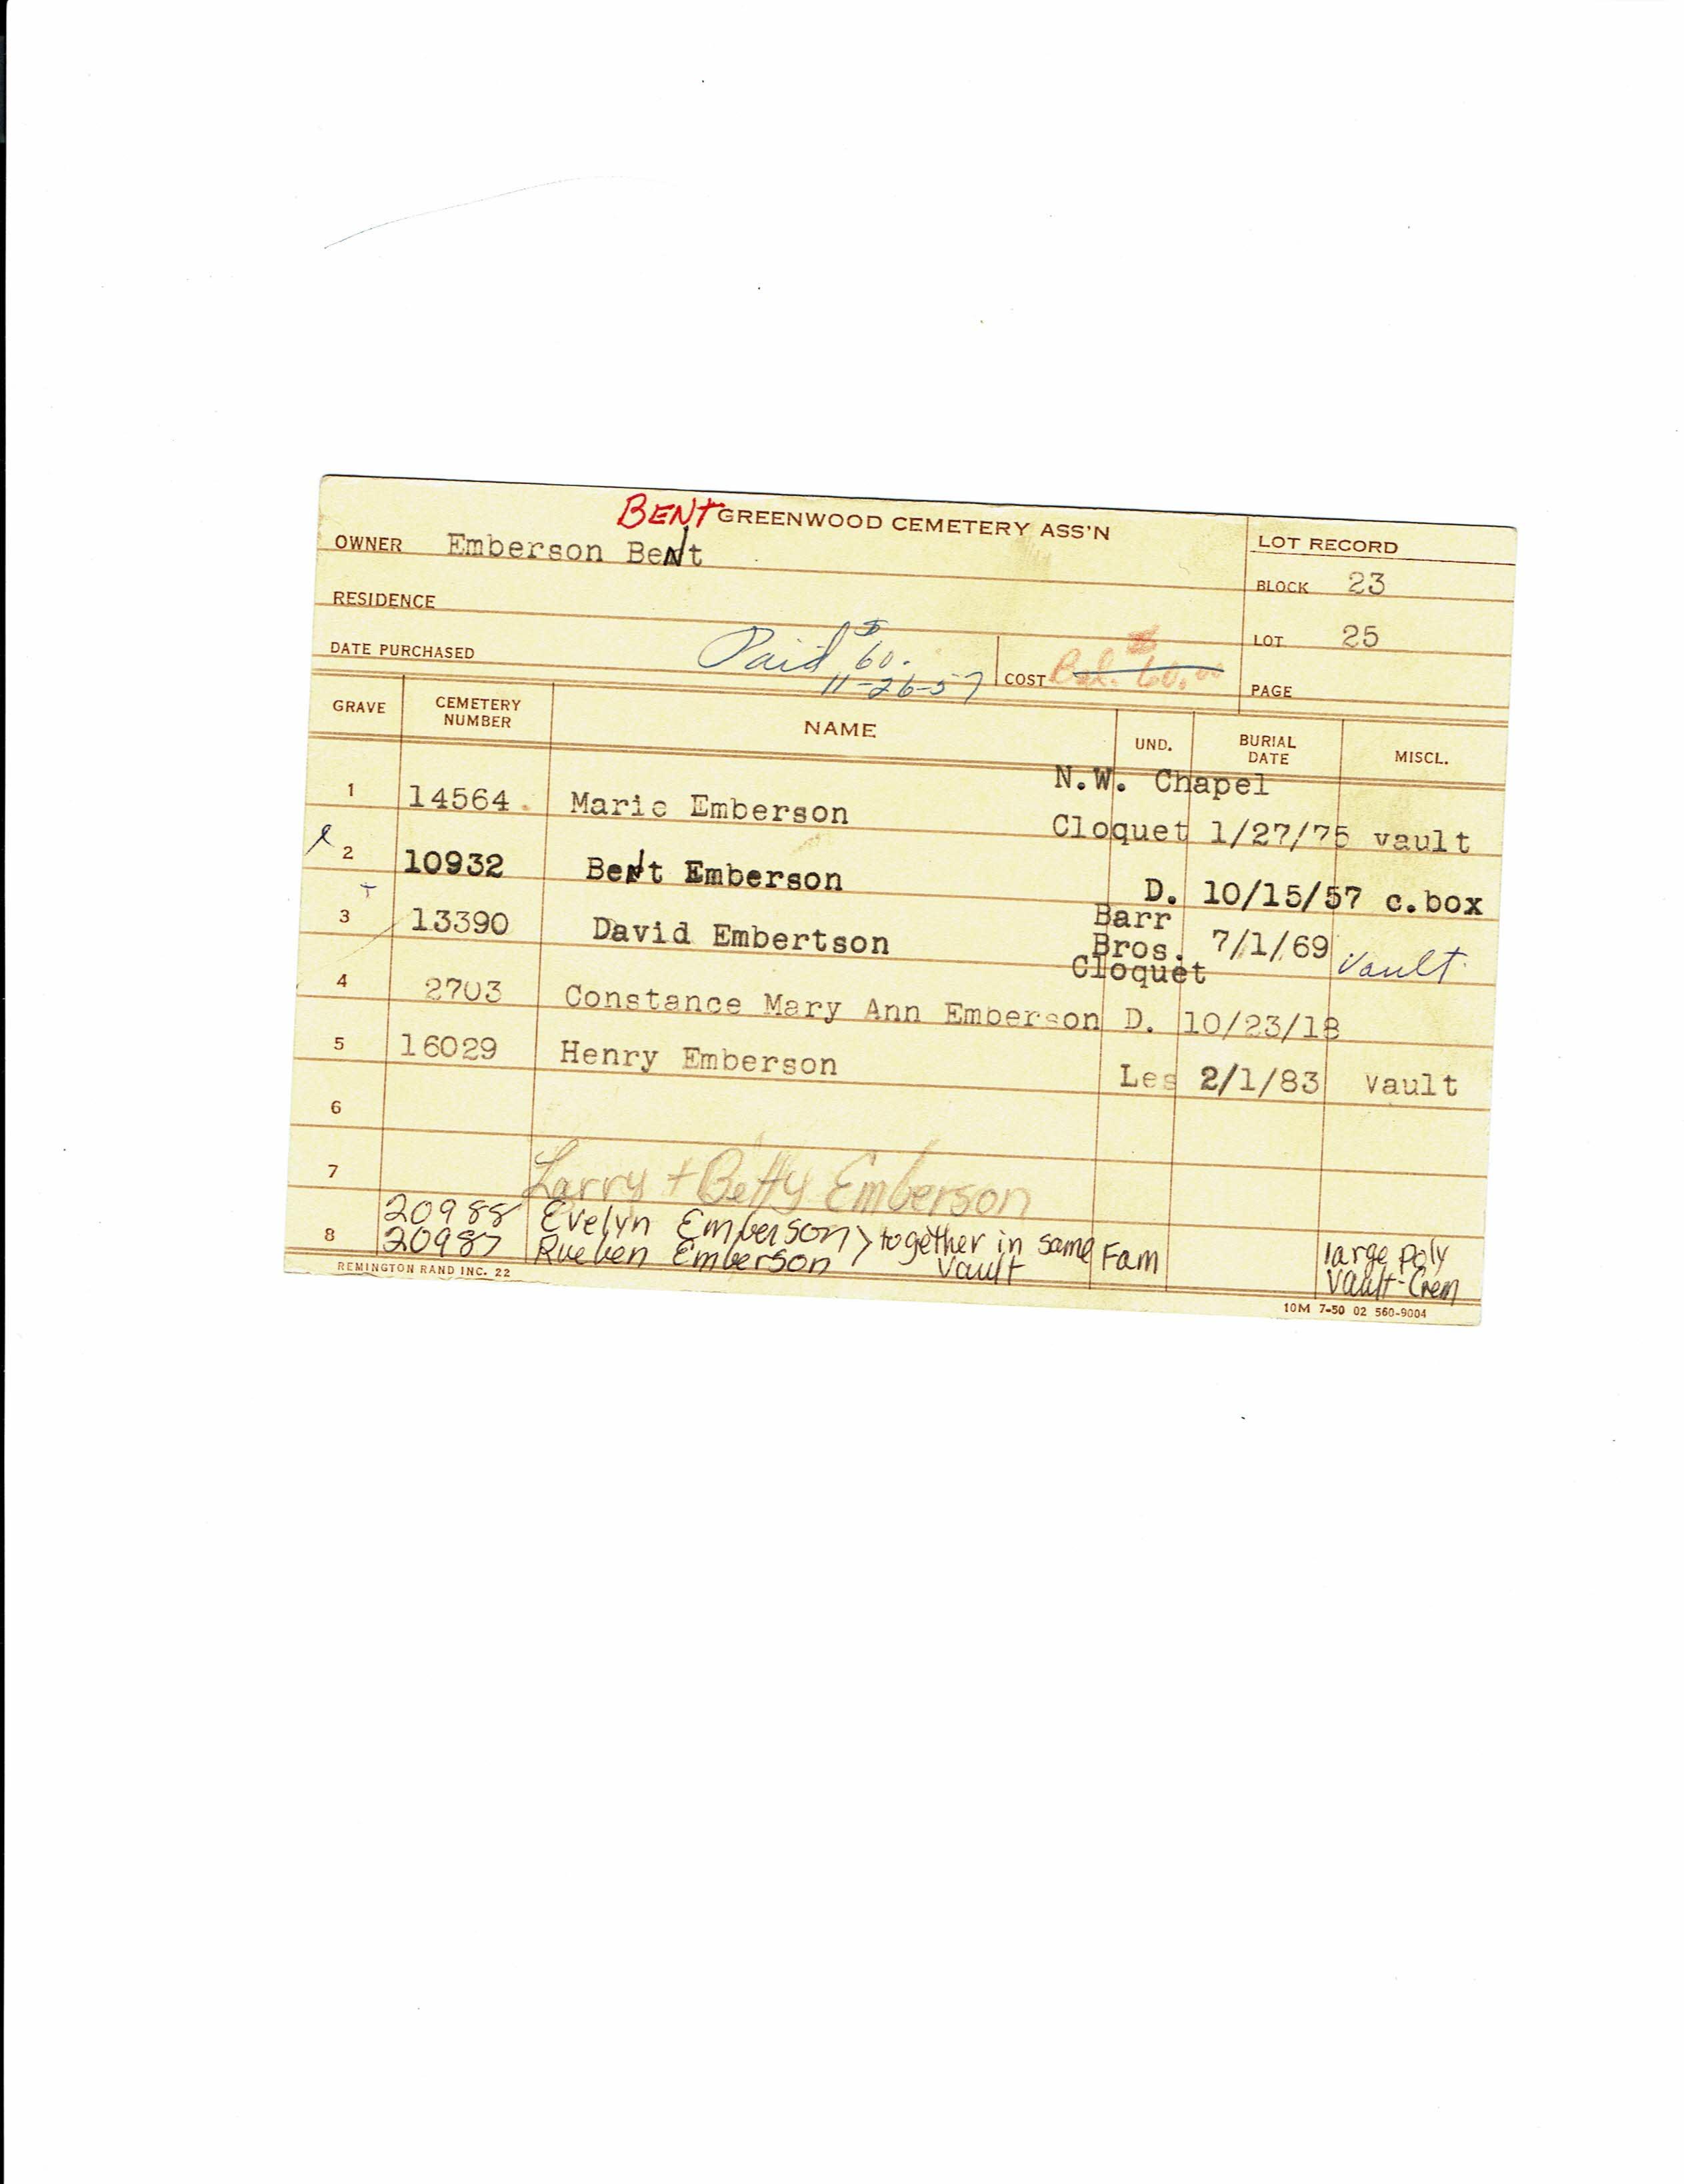 BENT GREENWOOD CEMETERY ASS'N
OWNER Emberson Bent
LOT RECORD
BLOCK 23
RESIDENCE
LOT 25
DATE PURCHASED Paid $60.
11-26-57
COST Bal. $60.00
PAGE
GRAVE CEMETERY NUMBER NAME UND. BURIAL DATE MISCL.
N.W. Chapel
1 14564. Marie Emberson Cloquet 1/27/75 vault
2 10932 Bent Emberson D. 10/15/57 c.box
3 13390 David Embertson Barr Bros. Cloquet 7/1/69 Vault
4 2703 Constance Mary Ann Emberson D. 10/23/18
5 16029 Henry Emberson Les 2/1/83 vault
6
7 Larry + Betty Emberson
20988 Evelyn Emberson > together in same Vault Fam large poly Vault-Crem
8 20987 Rueben Emberson
REMINGTON RAND INC. 22
10M 7-50 02 560-9004